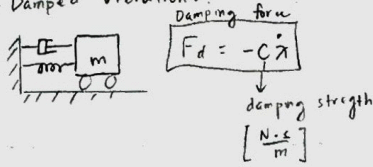 Damped Vibration:
Damping force
Fd = -Cẋ
m
damping strength
[N·s/m]